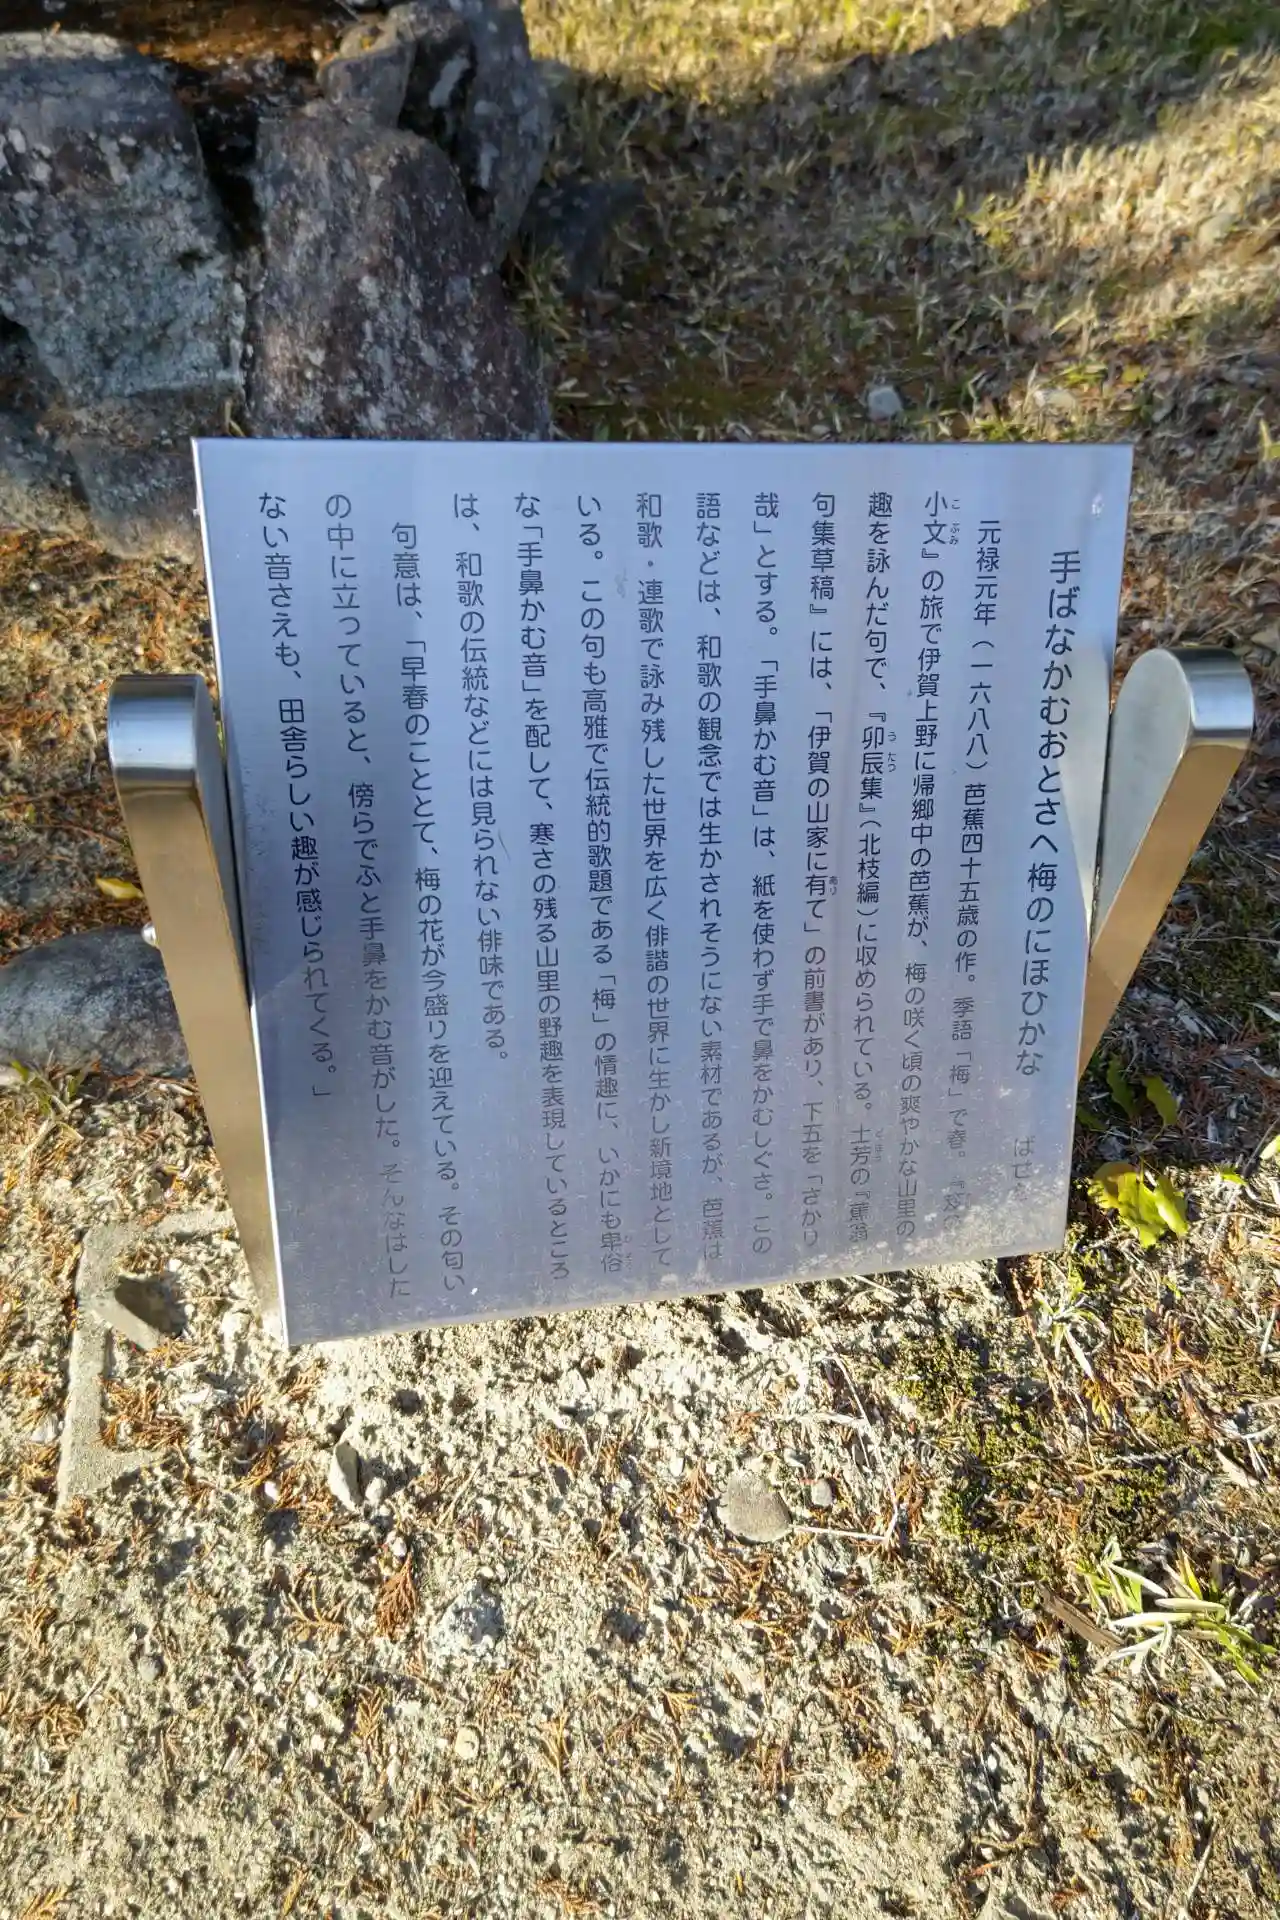 手ばなかむおとさへ梅のにほひかな　ばせ
元禄元年（一六八八）芭蕉四十五歳の作。季語「梅」で春。『笈の
小文』の旅で伊賀上野に帰郷中の芭蕉が、梅の咲く頃の爽やかな山里の
趣を詠んだ句で、『卯辰集』（北枝編）に収められている。土芳の『蕉翁
句集草稿』には、「伊賀の山家に有て」の前書があり、下五を「さかり
哉」とする。「手鼻かむ音」は、紙を使わず手で鼻をかむしぐさ。この
語などは、和歌の観念では生かされそうにない素材であるが、芭蕉は
和歌・連歌で詠み残した世界を広く俳諧の世界に生かし新境地として
いる。この句も高雅で伝統的歌題である「梅」の情趣に、いかにも卑俗
な「手鼻かむ音」を配して、寒さの残る山里の野趣を表現しているところ
は、和歌の伝統などには見られない俳味である。
句意は、「早春のこととて、梅の花が今盛りを迎えている。その匂い
の中に立っていると、傍らでふと手鼻をかむ音がした。そんなはした
ない音さえも、田舎らしい趣が感じられてくる。」